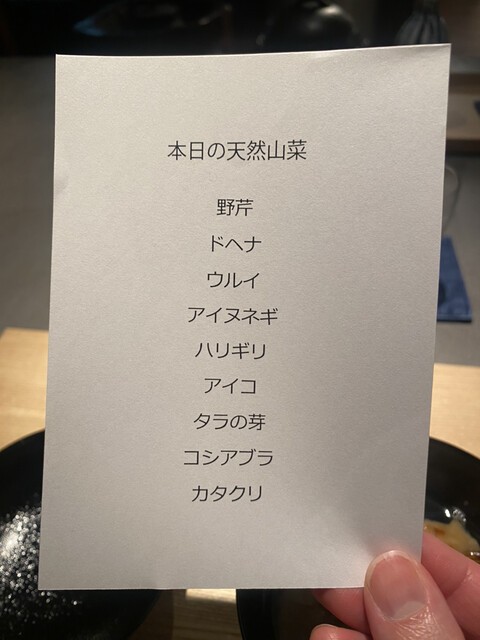 本日の天然山菜
野芹
ドヘナ
ウルイ
アイヌネギ
ハリギリ
アイコ
タラの芽
コシアブラ
カタクリ